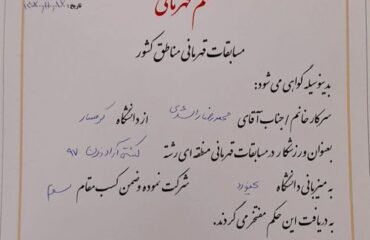 حکم قهرمانی
تاریخ:
مسابقات قهرمانی مناطق کشور
بدینوسیله گواهی می‌شود:
سرکار خانم / جناب آقای محمدرضا راشدی از دانشگاه گرمسار
بعنوان ورزشکار در مسابقات قهرمانی منطقه ای رشته کشتی آزاد وزن ۹۷
به میزبانی دانشگاه بجنورد شرکت نموده و ضمن کسب مقام سوم
به دریافت این حکم مفتخر می گردند.